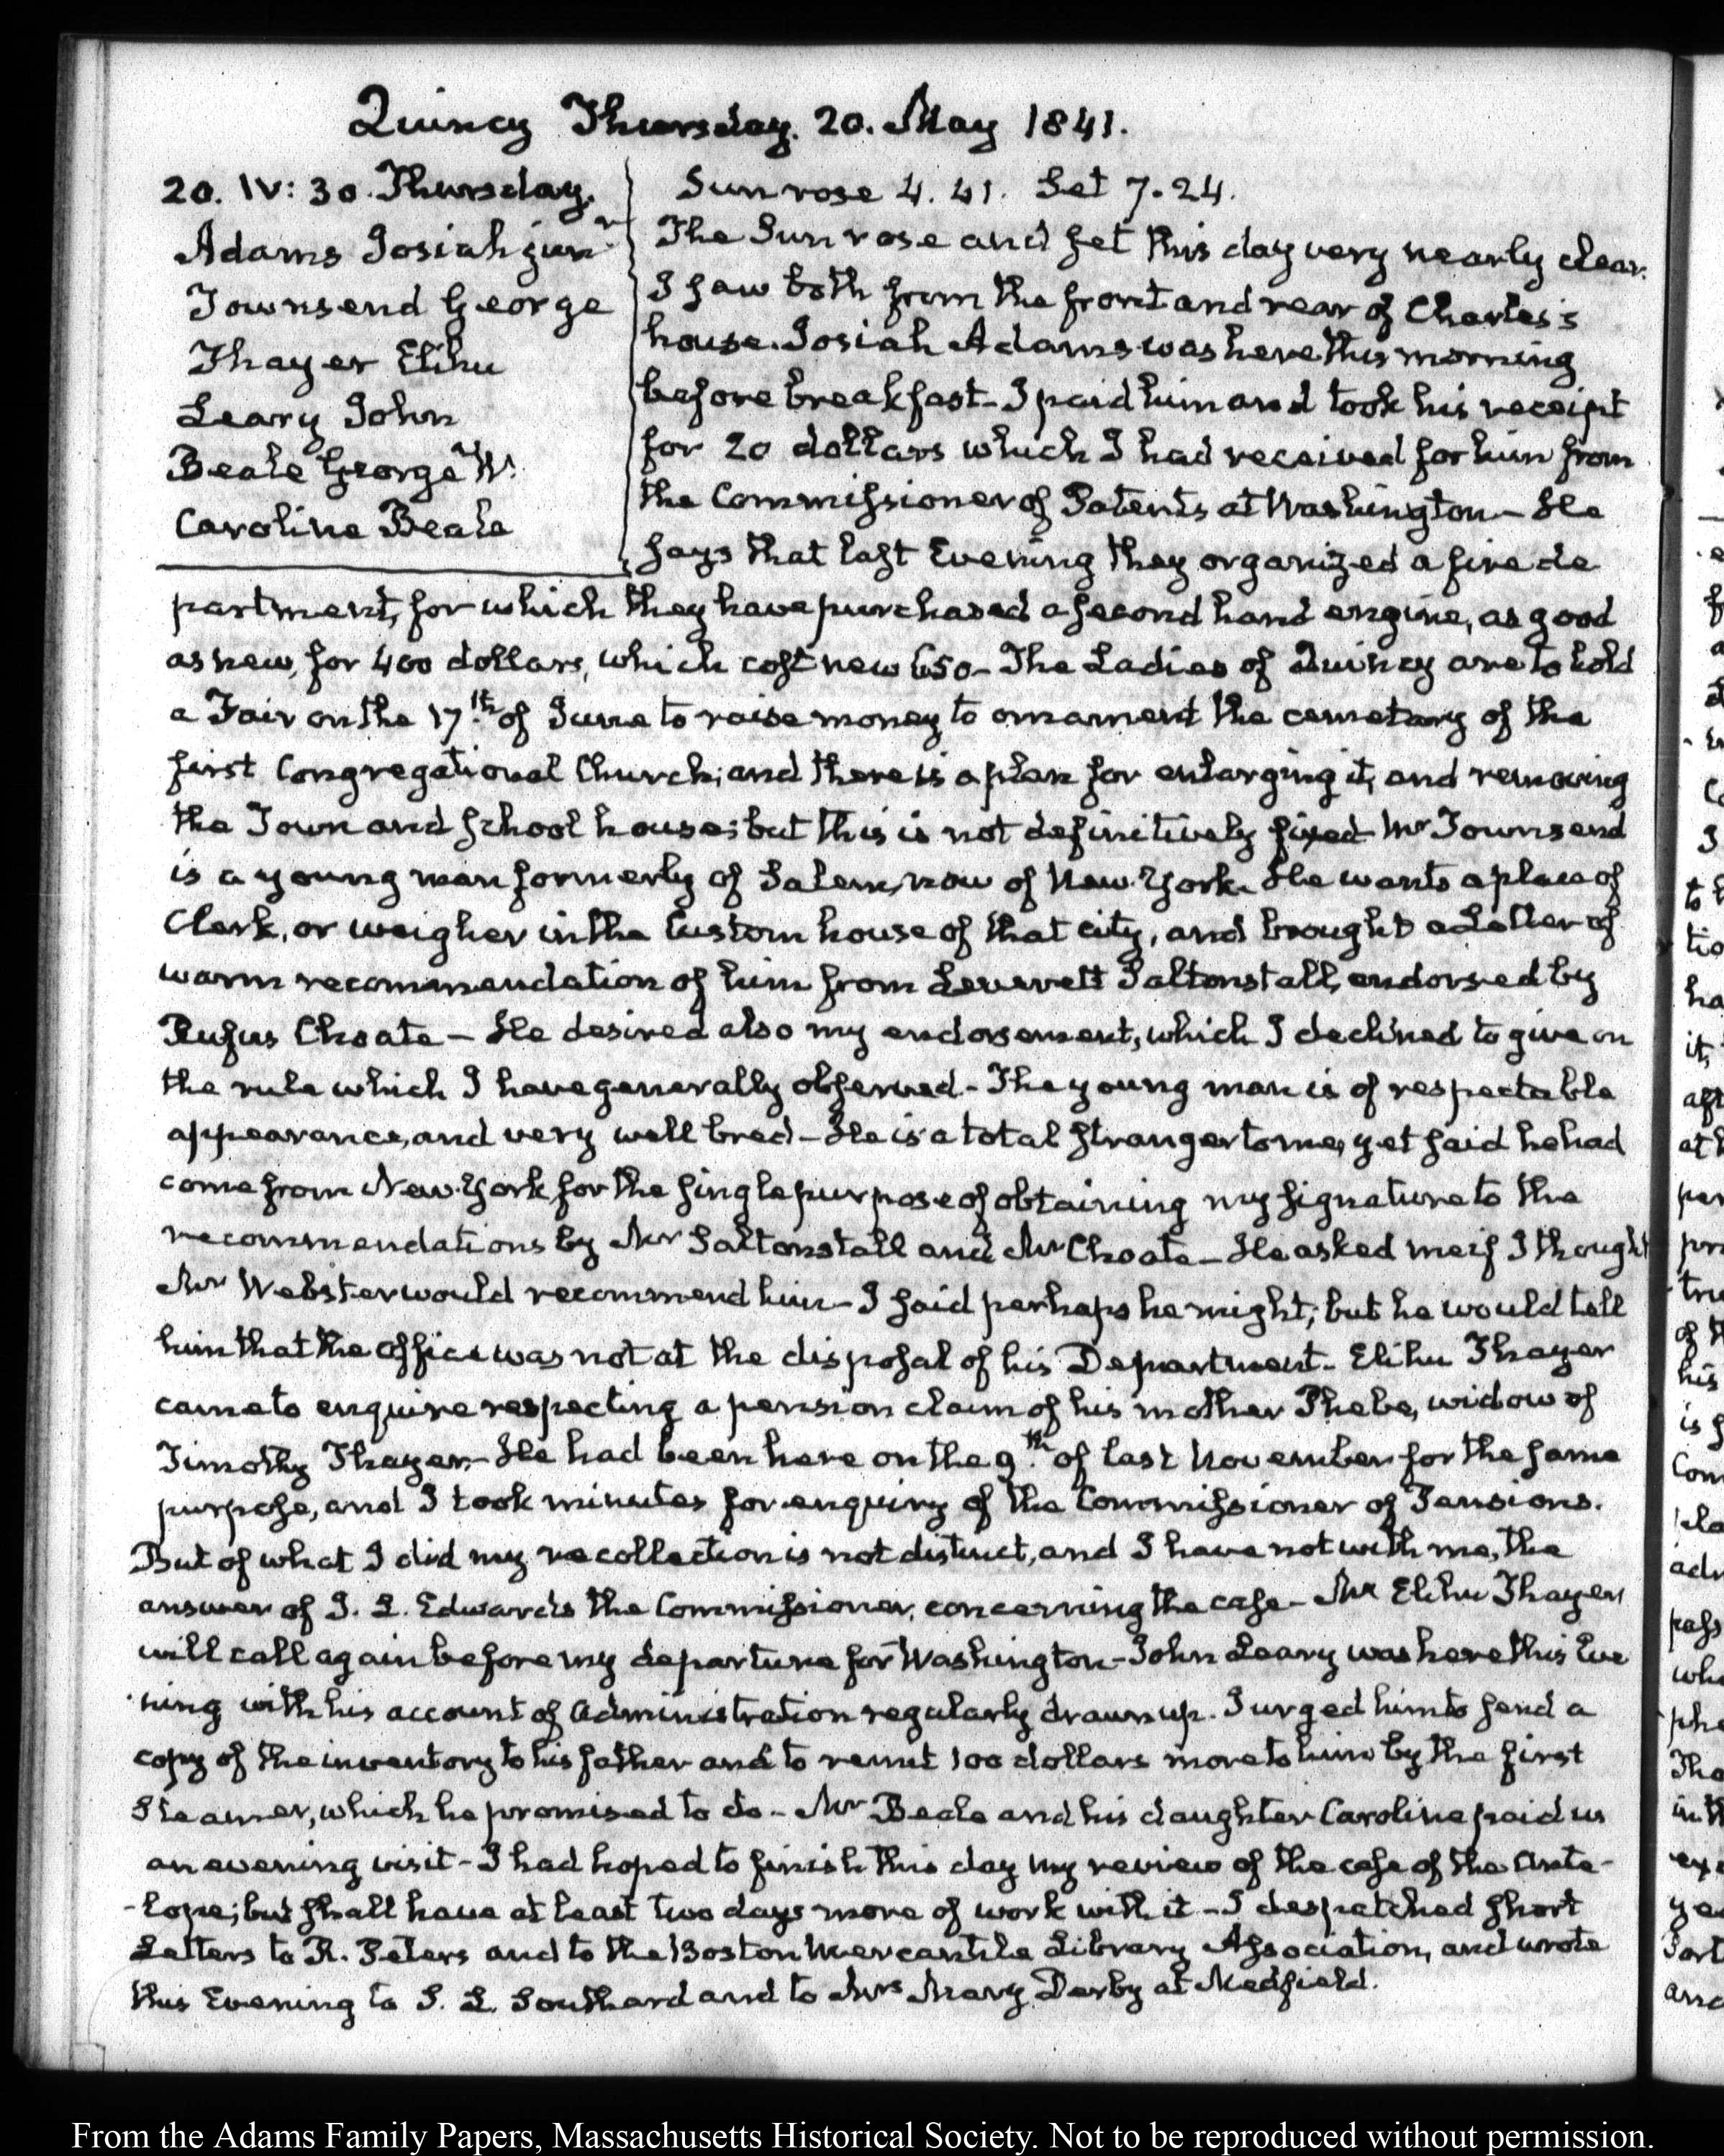 Quincy Thursday. 20. May 1841.
20. IV: 30. Thursday.
Adams Josiah junr.
Townsend George
Thayer Elihu
Leary John
Beale George W.
Caroline Beale
Sun rose 4. 41. Set 7. 24.
The Sun rose and set this day very nearly clear.
I saw both from the front and rear of Charles's
house. Josiah Adams was here this morning
before breakfast - I paid him and took his receipt
for 20 dollars which I had received for him from
the Commissioner of Patents at Washington - He
says that last Evening they organized a fire de
partment, for which they have purchased a second hand engine, as good
as new, for 400 dollars, which cost new 650 - The Ladies of Quincy are to hold
a Fair on the 17th. of June to raise money to ornament the cemetery of the
first Congregational Church; and there is a plan for enlarging it, and removing
the Town and school house; but this is not definitively fixed - Mr Townsend
is a young man formerly of Salem, now of New-York. He wants a place of
Clerk, or weigher in the Custom house of that city, and brought a Letter of
warm recommendation of him from Leverett Saltonstall, endorsed by
Rufus Choate - He desired also my endorsement, which I declined to give on
the rule which I have generally observed. - The young man is of respectable
appearance, and very well bred - He is a total stranger to me, yet said he had
come from New-York, for the single purpose of obtaining my signature to the
recommendations by Mr Saltonstall and Mr Choate - He asked me if I thought
Mr Webster would recommend him - I said perhaps he might; but he would tell
him that the office was not at the disposal of his Department - Elihu Thayer
came to enquire respecting a pension claim of his mother Phebe, widow of
Timothy Thayer - He had been here on the 9th. of last November for the same
purpose, and I took minutes for enquiry of the Commissioner of Pensions.
But of what I did my recollection is not distinct, and I have not with me, the
answer of J. L. Edwards the Commissioner, concerning the case - Mr Elihu Thayer
will call again before my departure for Washington - John Leary was here this Eve
ning with his account of Administration regularly drawn up. I urged him to send a
copy of the inventory to his father and to remit 100 dollars more to him by the first
Steamer, which he promised to do - Mr Beale and his daughter Caroline paid us
an evening visit - I had hoped to finish this day my review of the case of the Ante-
-lope; but shall have at least two days more of work with it - I despatched short
Letters to R. Peters and to the Boston Mercantile Library Association, and wrote
this Evening to S. L. Southard and to Mrs Mary Derby at Medfield.
From the Adams Family Papers, Massachusetts Historical Society. Not to be reproduced without permission.